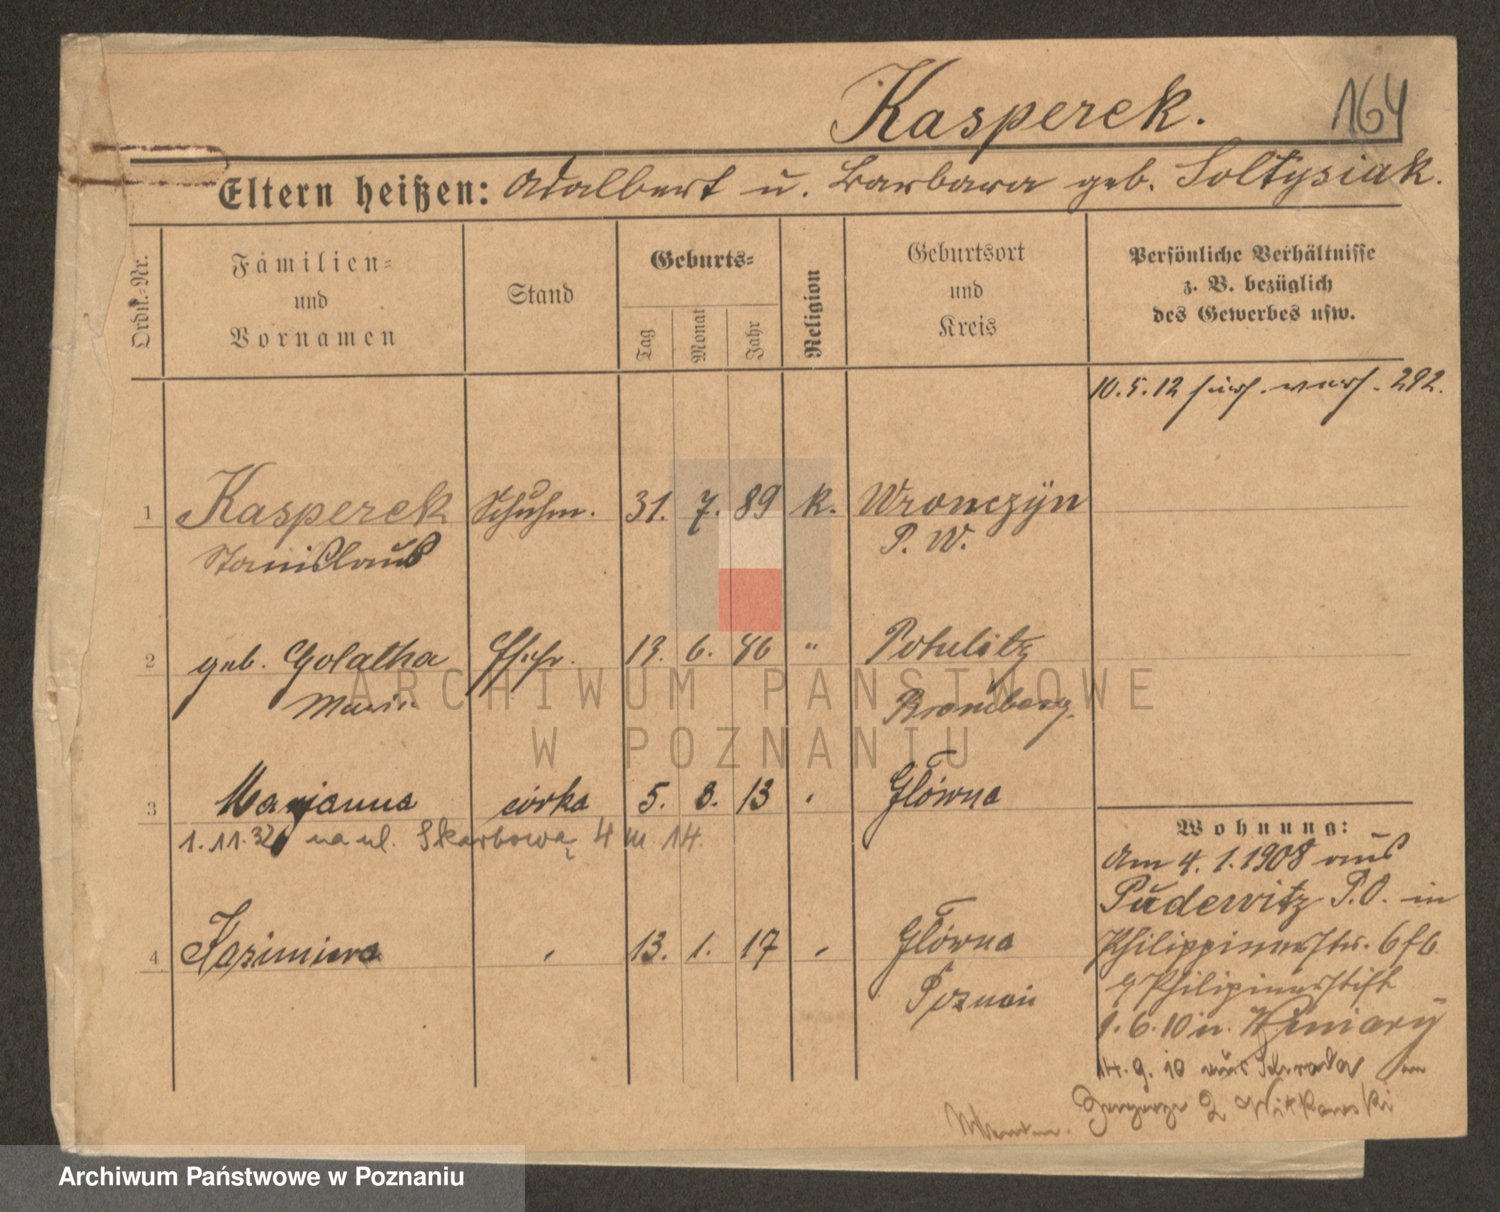 Kasperek.
164
Eltern heißen: Adalbert u. Barbara geb. Soltysiak.
Ordn.-Nr.
Familien-
und
Vornamen
Stand
Geburts-
Tag
Monat
Jahr
Religion
Geburtsort
und
Kreis
Persönliche Verhältnisse
z. B. bezüglich
des Gewerbes usw.
10. 5. 12 292.
1 Kasperek Schuhm. 31. 7. 89 k. Wronczyn
Stanislaus P. W.
2 geb. Golatka Ehefr. 6. " Potulitz
Marie Bromberg.
3 Marjanna córka 5. 8. 13 Główna
1.11.32 na ul. Skarbową 4 m 14.
4 Kazimiera 13. 1. 17 Główna
Poznań
Wohnung:
Am 4. 1. 1908 aus
Pudewitz P.O. in
Philippinerstr. 6
Philipinerstift
1. 6. 10 n. Winiary
14. 9. 10 aus Schroda
2 Witkowski
ARCHIWUM PAŃSTWOWE
W POZNANIU
Archiwum Państwowe w Poznaniu